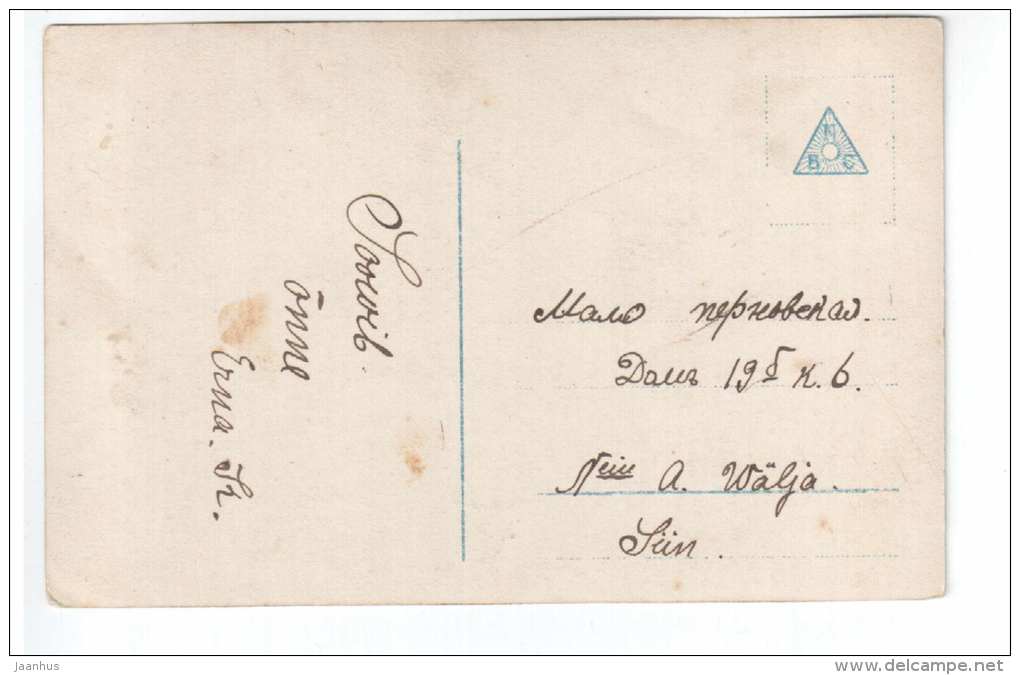 Soowib
õnne
Erna. K.
Мало перновская.
Домъ 19 к. 6.
A. Wälja.
Siin.
N
B C
jaanhus
www.delcampe.net